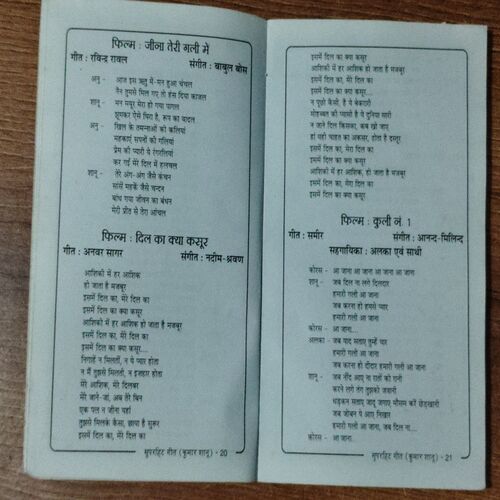 फिल्म : जीना तेरी गली में
गीत : रविन्द्र रावल
संगीत : बाबुल बोस
अनु - आज इस ऋतु में-मन हुआ चंचल
नैन तुमसे मिल गए तो हंस दिया काजल
शानू - मन मयूर मेरा हो गया पागल
झूमकर ऐसे घिरा है, रूप का बादल
अनु - खिल के तमन्नाओं की कलियां
महकाएं सपनों की गलियां
प्रेम की प्यारी ये रंगरलियां
कर गई मेरे दिल में हलचल
शानू - तेरे अंग-अंग जैसे कंचन
सांसें महकें जैसे चन्दन
बांध गया जीवन का बंधन
मेरी प्रीत से तेरा आंचल
फिल्म : दिल का क्या कसूर
गीत : अनवर सागर
संगीत : नदीम-श्रवण
आशिकी में हर आशिक
हो जाता है मजबूर
इसमें दिल का, मेरे दिल का
इसमें दिल का क्या कसूर
आशिकी में हर आशिक हो जाता है मजबूर
इसमें दिल का, मेरे दिल का
इसमें दिल का क्या कसूर...
निगाहें न मिलतीं, न ये प्यार होता
न मैं तुझसे मिलती, न इजहार होता
मेरे आशिक, मेरे दिलबर
मेरे जाने-जां, अब तेरे बिन
एक पल न जीना यहां
तुझसे मिलके कैसा, छाया है सुरूर
इसमें दिल का, मेरे दिल का
सुपरहिट गीत (कुमार शानू) - 20
इसमें दिल का क्या कसूर
आशिकी में हर आशिक हो जाता है मजबूर
इसमें दिल का, मेरे दिल का
इसमें दिल का क्या कसूर...
न पूछो कैसी, है ये बेकरारी
मोहब्बत की प्यासी है ये दुनिया सारी
न जाने दिल किसका, कब खो जाए
हां यही चाहत का अकसर, होता है दस्तूर
इसमें दिल का, मेरा दिल का
इसमें दिल का क्या कसूर
आशिकी में हर आशिक हो जाता है मजबूर
इसमें दिल का, मेरा दिल का
इसमें दिल का क्या कसूर
फिल्म : कुली नं. 1
गीत : समीर
संगीत : आनन्द-मिलिन्द
सहगायिका : अलका एवं साथी
कोरस - आ जाना आ जाना आ जाना आ जाना
शानू - जब दिल ना लगे दिलदार
हमारी गली आ जाना
जब करना हो हमसे प्यार
हमारी गली आ जाना
कोरस - आ जाना...
अलका - जब याद सताए तुम्हें यार
हमारी गली आ जाना
जब करना हो दीदार हमारी गली आ जाना
शानू - जब नींद आए ना रातों की रानी
करने लगे तंग तुझको जवानी
धड़कन सताए जादू जगाए मौसम करे छेड़खानी
जब जोबन पे आए निखार
हमारी गली आ जाना, जब दिल ना...
कोरस - आ जाना.
सुपरहिट गीत (कुमार शानू) - 21